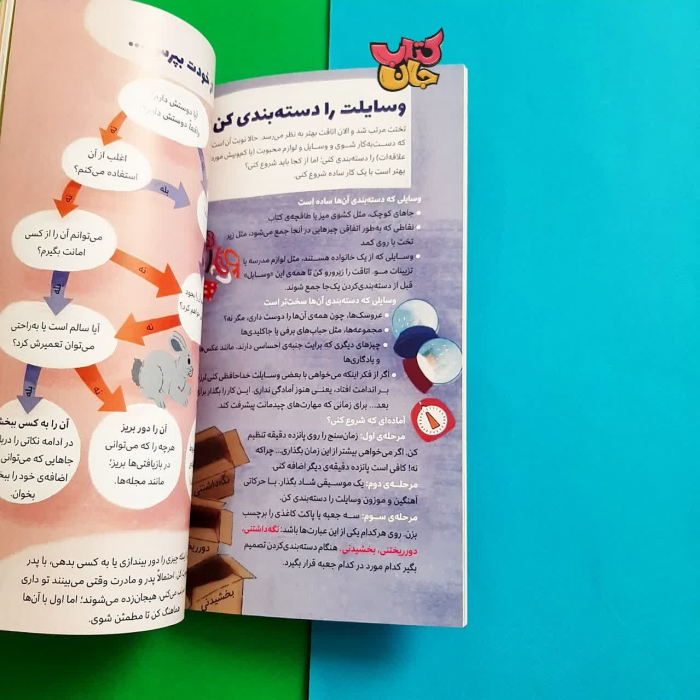 کتاب جان
وسایلت را دسته‌بندی کن
تختت مرتب شد و الان اتاقت بهتر به نظر می‌رسد. حالا نوبت آن است
که دست‌به‌کار شوی و وسایل و لوازم محبوبت (یا کم‌وبیش مورد
علاقه‌ات) را دسته‌بندی کنی؛ اما از کجا باید شروع کنی؟
بهتر است با یک کار ساده شروع کنی.
وسایلی که دسته‌بندی آن‌ها ساده است
جاهای کوچک، مثل کشوی میز یا طاقچه‌ی کتاب
نقاطی که به‌طور اتفاقی چیزهایی در آنجا جمع می‌شود، مثل زیر
تخت یا روی کمد
وسایلی که از یک خانواده هستند، مثل لوازم مدرسه یا
تزیینات مو. اتاقت را زیرورو کن تا همه‌ی این «وسایل»
قبل از دسته‌بندی‌کردن یک‌جا جمع شوند.
وسایلی که دسته‌بندی آن‌ها سخت‌تر است
عروسک‌ها، چون همه‌ی آن‌ها را دوست داری، مگر نه؟
مجموعه‌ها، مثل حباب‌های برفی یا جاکلیدی‌ها
چیزهای دیگری که برایت جنبه‌ی احساسی دارند، مانند عکس‌ها
و یادگاری‌ها
اگر از فکر اینکه می‌خواهی با بعضی وسایلت خداحافظی کنی لرزه
بر اندامت افتاد، یعنی هنوز آمادگی نداری. این کار را بگذار برای
بعد... برای زمانی که مهارت‌های چیدمانت پیشرفت کند.
آماده‌ای که شروع کنی؟
مرحله‌ی اول: زمان‌سنج را روی پانزده دقیقه تنظیم
کن. اگر می‌خواهی بیشتر از این زمان بگذاری... چراکه
نه! کافی است پانزده دقیقه‌ی دیگر اضافه کنی.
مرحله‌ی دوم: یک موسیقی شاد بگذار. با حرکاتی
آهنگین و موزون وسایلت را دسته‌بندی کن.
مرحله‌ی سوم: سه جعبه یا پاکت کاغذی را برچسب
بزن. روی هرکدام یکی از این عبارت‌ها باشد: نگه‌داشتنی،
دورریختنی، بخشیدنی. هنگام دسته‌بندی‌کردن تصمیم
بگیر کدام مورد در کدام جعبه قرار بگیرد.
نگه‌داشتنی
دورریختنی
بخشیدنی
از خودت بپرس...
آیا دوستش داری؟
واقعاً دوستش داری؟
نه
اغلب از آن
استفاده می‌کنم؟
بله
نه
می‌توانم آن را از کسی
امانت بگیرم؟
نه
بله
آیا سالم است یا به‌راحتی
می‌توان تعمیرش کرد؟
نه
بله
نه
آن را دور بریز
هرچه را که می‌توانی
در بازیافتی‌ها بریز؛
مانند مجله‌ها.
آن را به کسی ببخش
در ادامه نکاتی را درباره
جاهایی که می‌توانی
اضافه‌ی خود را ببخشی
بخوان.
اینکه چیزی را دور بیندازی یا به کسی بدهی، با پدر
احتمالاً پدر و مادرت وقتی می‌بینند تو داری
می‌کنی هیجان‌زده می‌شوند؛ اما اول با آن‌ها
هماهنگ کن تا مطمئن شوی.